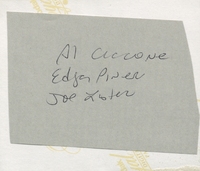 Al Ciccone
Edgar Piner
Joe Lister